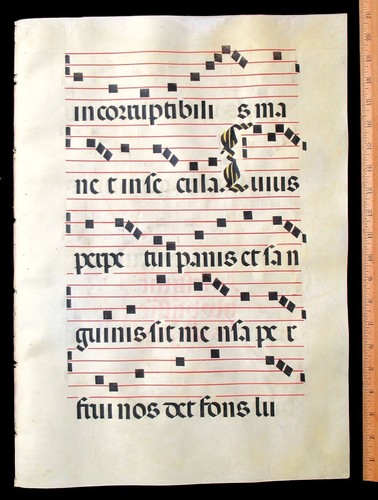 incorruptibili s ma
ne t in se cula. Huius
perpe tui panis et sa n
guinis sit me nsa pe r
frui nos det fons lu